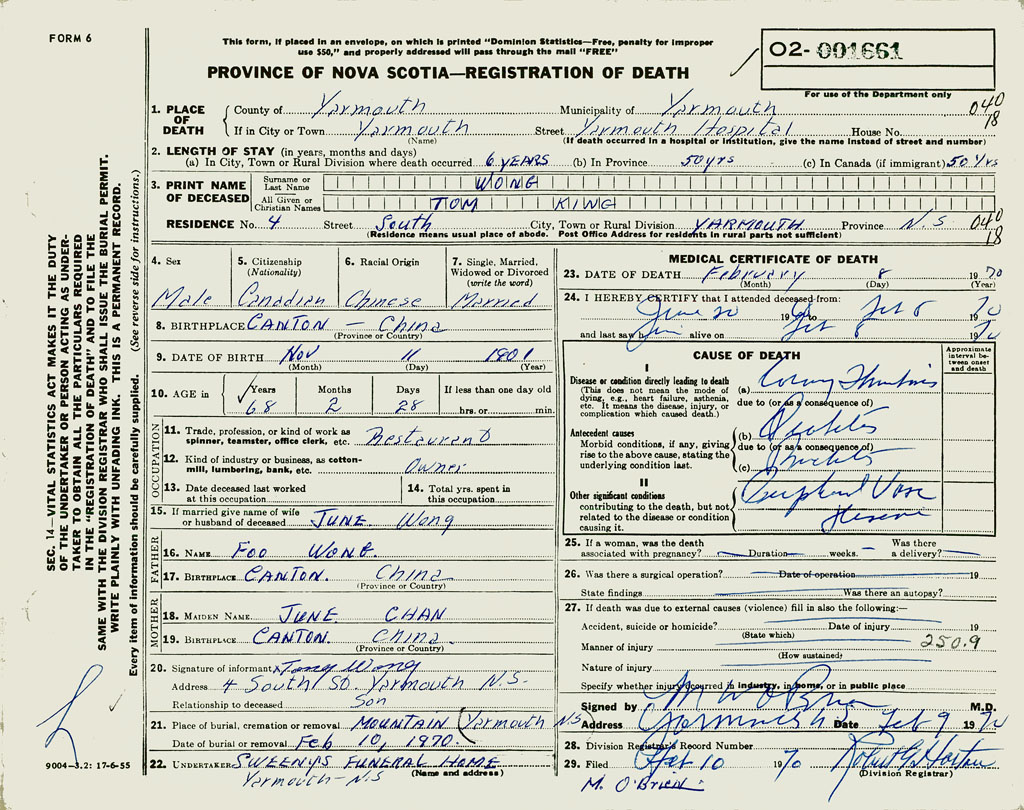 FORM 6
This form, if placed in an envelope, on which is printed "Dominion Statistics—Free, penalty for improper
use $50," and properly addressed will pass through the mail "FREE"
PROVINCE OF NOVA SCOTIA—REGISTRATION OF DEATH
O2-001661
For use of the Department only
SEC. 14—VITAL STATISTICS ACT MAKES IT THE DUTY
OF THE UNDERTAKER OR PERSON ACTING AS UNDER-
TAKER TO OBTAIN ALL THE PARTICULARS REQUIRED
IN THE "REGISTRATION OF DEATH" AND TO FILE THE
SAME WITH THE DIVISION REGISTRAR WHO SHALL ISSUE THE BURIAL PERMIT.
WRITE PLAINLY WITH UNFADING INK. THIS IS A PERMANENT RECORD.
Every item of information should be carefully supplied. (See reverse side for instructions.)
1. PLACE OF DEATH County of Yarmouth Municipality of Yarmouth 040
If in City or Town Yarmouth Street Yarmouth Hospital House No. 18
(Name) (If death occurred in a hospital or institution, give the name instead of street and number)
2. LENGTH OF STAY (in years, months and days)
(a) In City, Town or Rural Division where death occurred 6 YEARS (b) In Province 50 yrs (c) In Canada (if immigrant) 50 Yrs
3. PRINT NAME OF DECEASED Surname or Last Name WONG
All Given or Christian Names TOM KING
RESIDENCE No. 4 Street South City, Town or Rural Division YARMOUTH Province N.S 040
18
(Residence means usual place of abode. Post Office Address for residents in rural parts not sufficient)
4. Sex 5. Citizenship (Nationality) 6. Racial Origin 7. Single, Married, Widowed or Divorced (write the word)
Male Canadian Chinese Married
8. BIRTHPLACE CANTON – China
(Province or Country)
9. DATE OF BIRTH Nov 11 1901
(Month) (Day) (Year)
10. AGE in Years Months Days If less than one day old
68 2 28 hrs. or min.
OCCUPATION
11. Trade, profession, or kind of work as spinner, teamster, office clerk, etc. Restaurant
12. Kind of industry or business, as cotton-mill, lumbering, bank, etc. Owner
13. Date deceased last worked at this occupation 14. Total yrs. spent in this occupation
15. If married give name of wife or husband of deceased JUNE Wong
FATHER
16. NAME FOO WONG
17. BIRTHPLACE CANTON. China
(Province or Country)
MOTHER
18. MAIDEN NAME JUNE CHAN
19. BIRTHPLACE CANTON. China.
(Province or Country)
20. Signature of informant Wong
Address 4 South St. Yarmouth N.S.
Relationship to deceased Son
21. Place of burial, cremation or removal MOUNTAIN (Yarmouth NS
Date of burial or removal Feb 10, 1970.
22. UNDERTAKER SWEENYS FUNERAL HOME
(Name and address)
Yarmouth – N.S
9004–3.2: 17-6-55
MEDICAL CERTIFICATE OF DEATH
23. DATE OF DEATH February 8 1970
(Month) (Day) (Year)
24. I HEREBY CERTIFY that I attended deceased from:
June 20 19 to Feb 8 1970
and last saw him alive on Feb 8 1970
CAUSE OF DEATH
Approximate interval between onset and death
I
Disease or condition directly leading to death (a)
(This does not mean the mode of dying, e.g., heart failure, asthenia, etc. It means the disease, injury, or complication which caused death.)
due to (or as a consequence of)
Antecedent causes (b)
Morbid conditions, if any, giving rise to the above cause, stating the underlying condition last.
due to (or as a consequence of)
(c)
II
Other significant conditions
contributing to the death, but not related to the disease or condition causing it.
25. If a woman, was the death associated with pregnancy? Duration weeks. Was there a delivery?
26. Was there a surgical operation? Date of operation 19
State findings Was there an autopsy?
27. If death was due to external causes (violence) fill in also the following:—
Accident, suicide or homicide? Date of injury 19
(State which)
Manner of injury 250.9
(How sustained)
Nature of injury
Specify whether injury occurred in industry, in home, or in public place
Signed by M W O'Brien M.D.
Address Yarmouth Date Feb 9 1970
28. Division Registrar's Record Number
29. Filed Feb 10 1970
(Division Registrar)
M. O'BRIEN